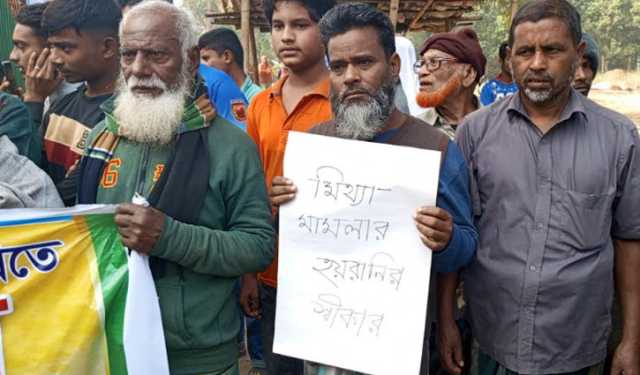 মিথ্যা-
মামলার
হয়রানির
স্বীকার